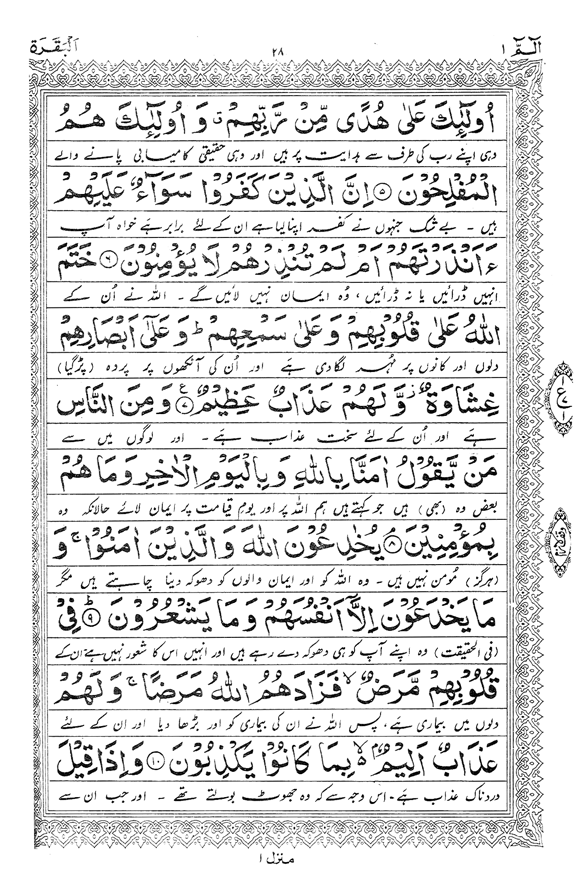 الٓـمّٓ ١ ٢٨ اَلْبَقَرَة
اُولٰٓئِكَ عَلٰى هُدًى مِّنْ رَّبِّهِمْ ۗ وَ اُولٰٓئِكَ هُمُ
وہی اپنے رب کی طرف سے ہدایت پر ہیں اور وہی حقیقی کامیابی پانے والے
الْمُفْلِحُوْنَ ۝۵ اِنَّ الَّذِيْنَ كَفَرُوْا سَوَآءٌ عَلَيْهِمْ
ہیں ۔ بے شک جنہوں نے کفر اپنا لیا ہے ان کے لئے برابر ہے خواہ آپ
ءَاَنْذَرْتَهُمْ اَمْ لَمْ تُنْذِرْهُمْ لَا يُؤْمِنُوْنَ ۝۶ خَتَمَ
انہیں ڈرائیں یا نہ ڈرائیں ، وہ ایمان نہیں لائیں گے ۔ اللہ نے اُن کے
اللّٰهُ عَلٰى قُلُوْبِهِمْ وَ عَلٰى سَمْعِهِمْ ؕ وَ عَلٰٓى اَبْصَارِهِمْ
دلوں اور کانوں پر مُہر لگا دی ہے اور اُن کی آنکھوں پر پردہ (پڑ گیا)
غِشَاوَةٌ ؗ وَّ لَهُمْ عَذَابٌ عَظِيْمٌ ۝۷ ع وَ مِنَ النَّاسِ
ہے اور اُن کے لئے سخت عذاب ہے ۔ اور لوگوں میں سے
مَنْ يَّقُوْلُ اٰمَنَّا بِاللّٰهِ وَ بِالْيَوْمِ الْاٰخِرِ وَ مَا هُمْ
بعض وہ (بھی) ہیں جو کہتے ہیں ہم اللہ پر اور یومِ قیامت پر ایمان لائے حالانکہ وہ
بِمُؤْمِنِيْنَ ۝۸ يُخٰدِعُوْنَ اللّٰهَ وَ الَّذِيْنَ اٰمَنُوْا ۚ وَ
(ہرگز) مومن نہیں ہیں ۔ وہ اللہ کو اور ایمان والوں کو دھوکہ دینا چاہتے ہیں مگر
مَا يَخْدَعُوْنَ اِلَّاۤ اَنْفُسَهُمْ وَ مَا يَشْعُرُوْنَ ؕ ۝۹ فِيْ
(فی الحقیقت) وہ اپنے آپ کو ہی دھوکہ دے رہے ہیں اور انہیں اس کا شعور نہیں ہے ان کے
قُلُوْبِهِمْ مَّرَضٌ ۙ فَزَادَهُمُ اللّٰهُ مَرَضًا ۚ وَ لَهُمْ
دلوں میں بیماری ہے ، پس اللہ نے ان کی بیماری کو اور بڑھا دیا اور ان کے لئے
عَذَابٌ اَلِيْمٌۢ ۙ بِمَا كَانُوْا يَكْذِبُوْنَ ۝۱۰ وَ اِذَا قِيْلَ
دردناک عذاب ہے ۔ اس وجہ سے کہ وہ جھوٹ بولتے تھے ۔ اور جب ان سے
منزل ١